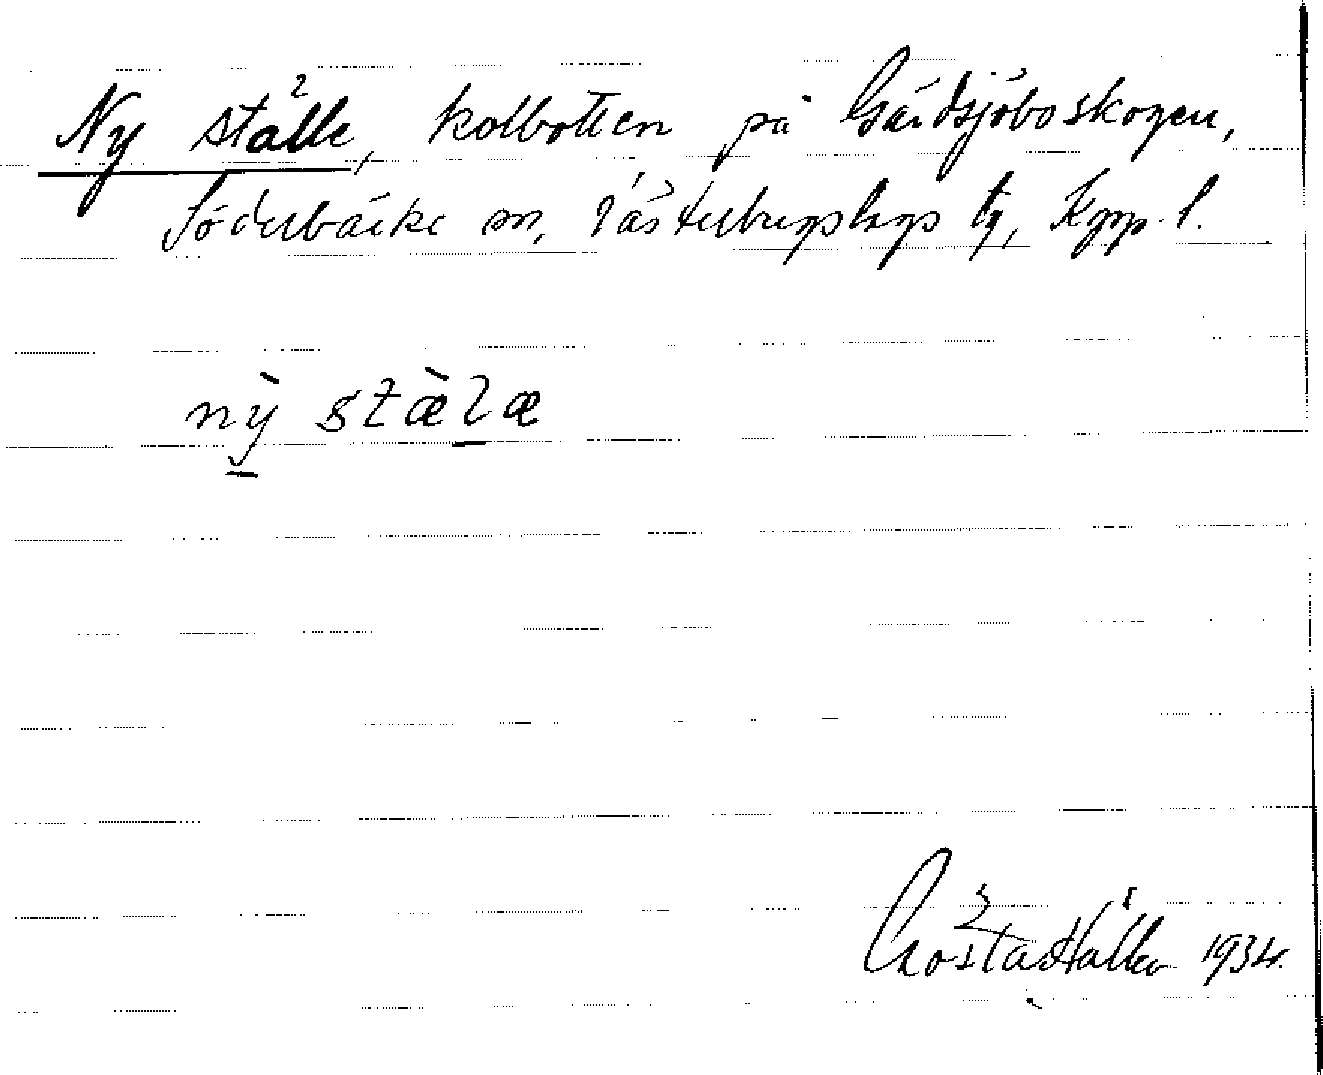 Ny ställe, kolbotten på Gårdsjöboskogen,
Söderbärke sn, Västerbergslags tg, Kopp. l.
nỳ̱ stæ̀l̠æ
Gösta 1934.